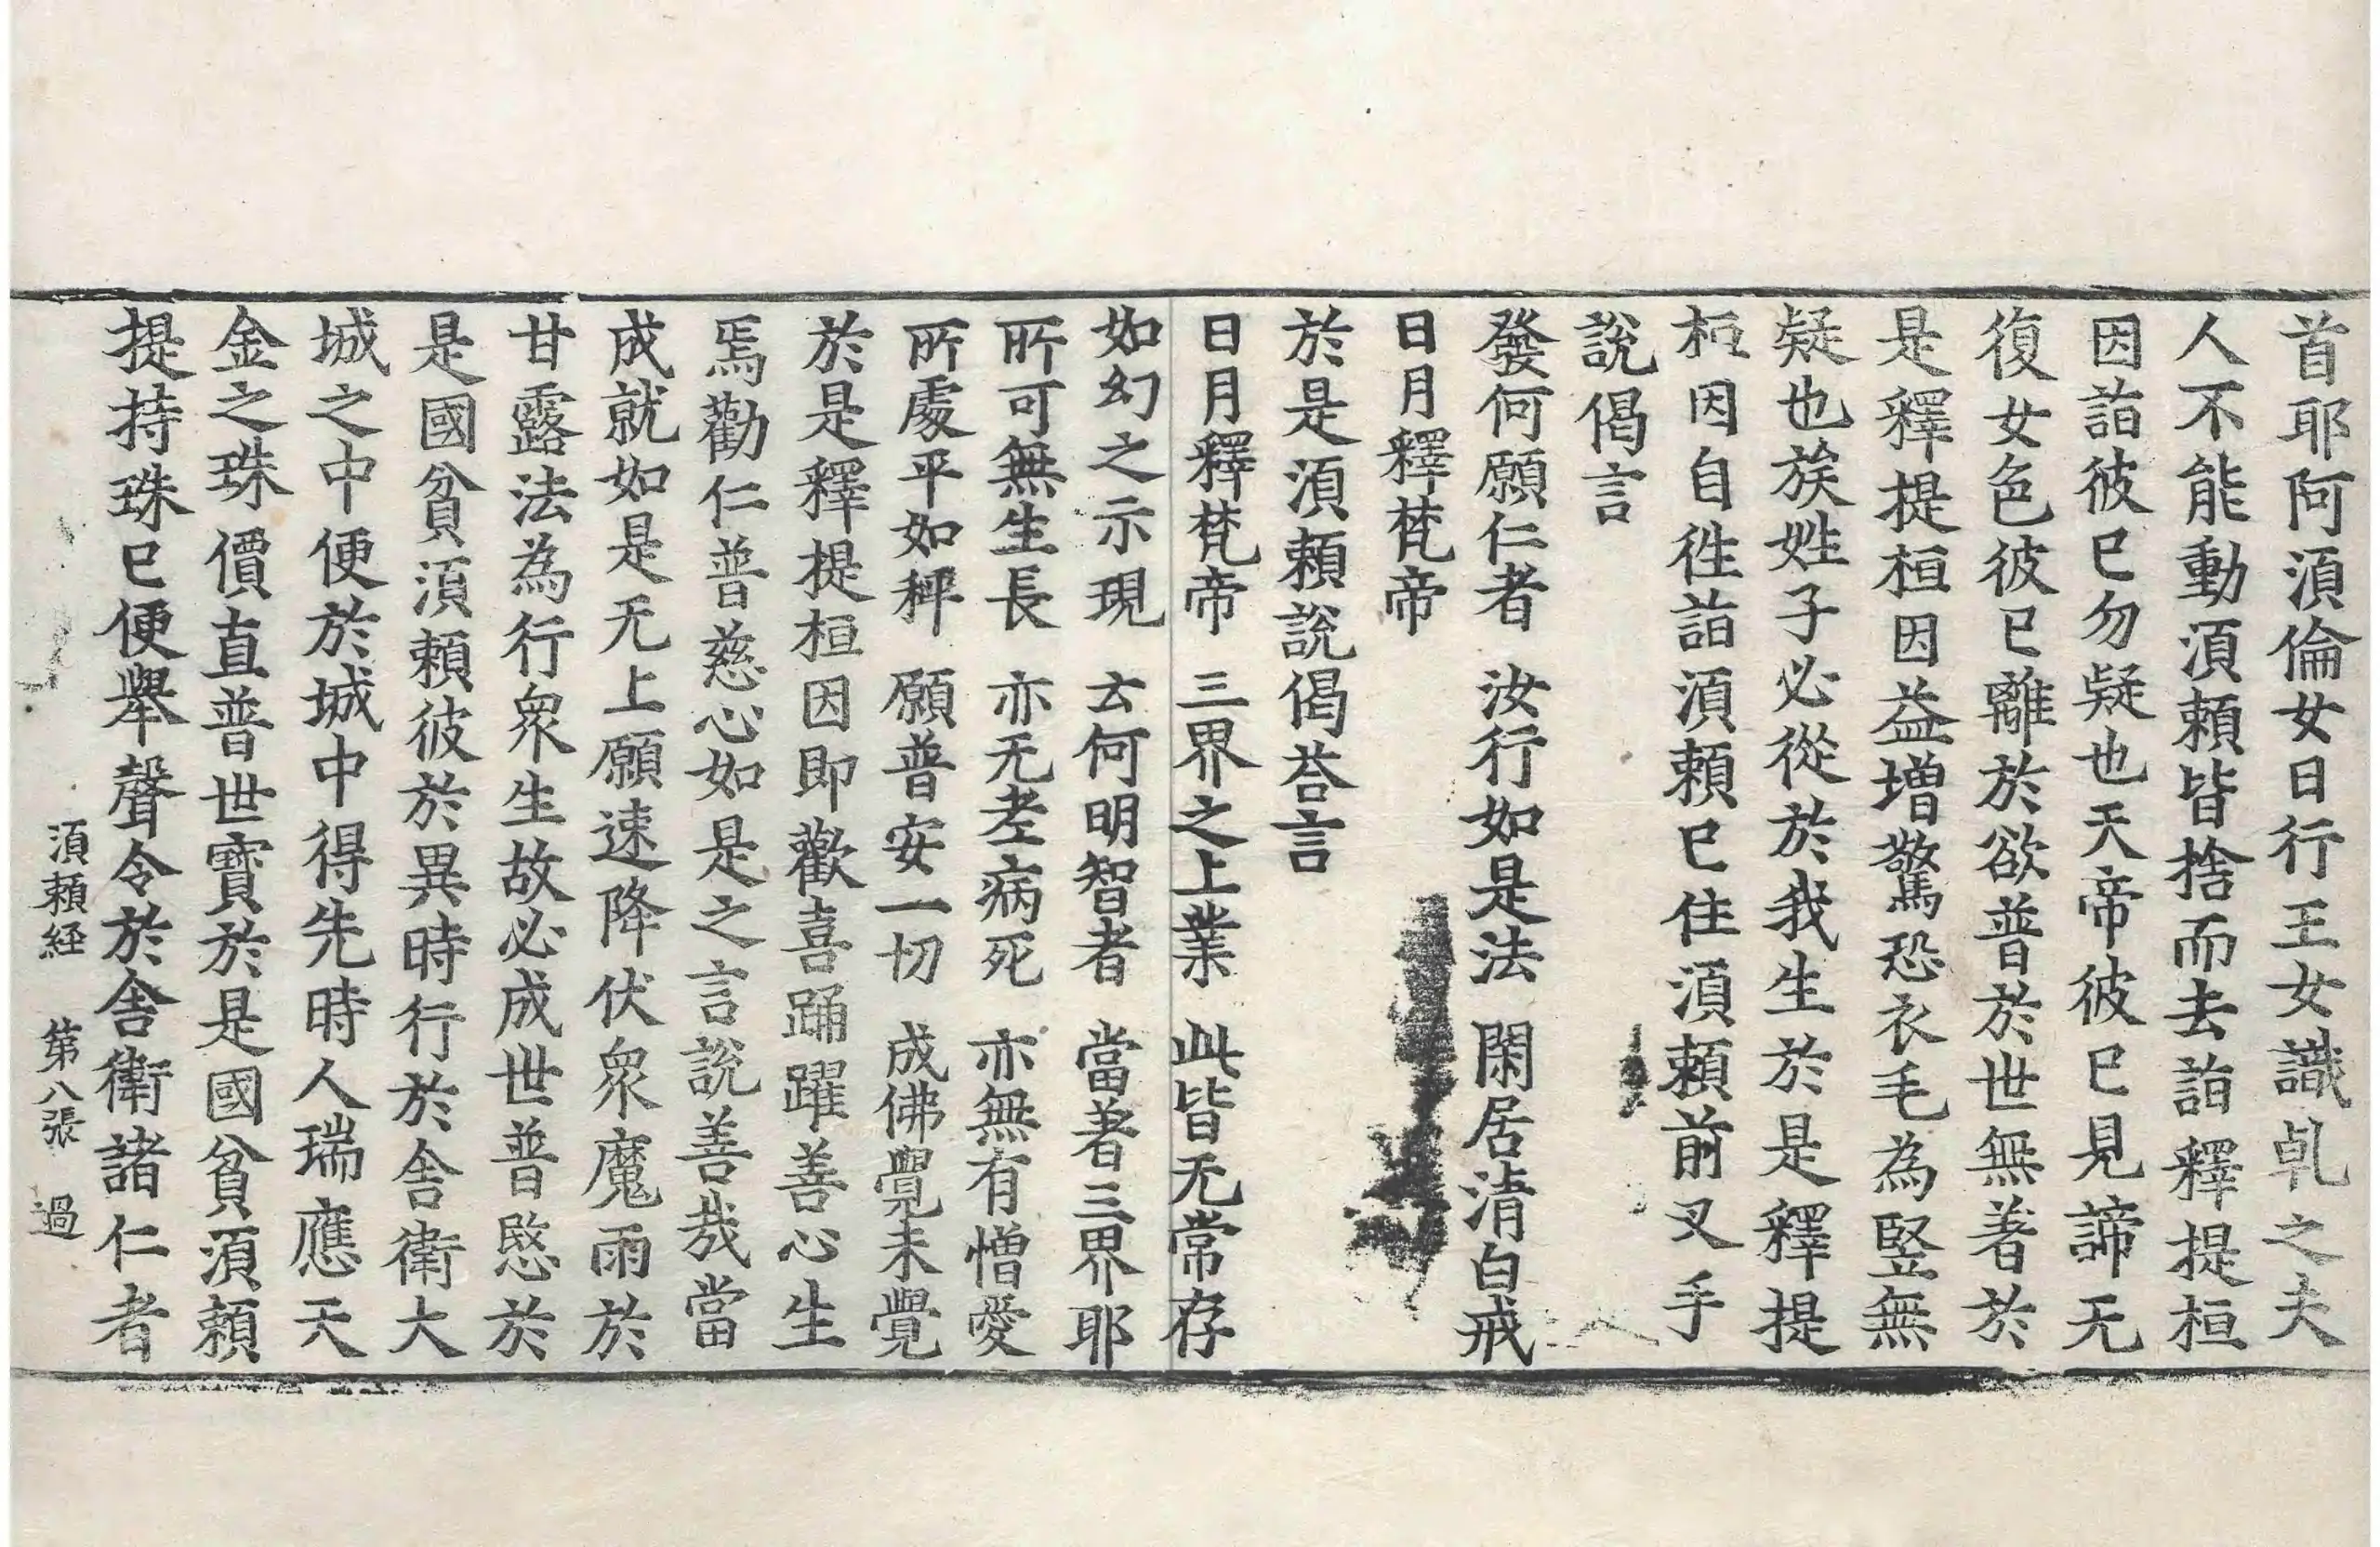 首耶阿湏倫女日行王女識乹之夫
人不能動湏頼皆捨而去詣釋提桓
因詣彼已勿疑也天帝彼已見諦无
復女色彼已離於欲普於世無著於
是釋提桓因益增驚恐衣毛為竪無
疑也族姓子必從於我生於是釋提
桓因自徃詣湏頼已住湏頼前叉手
說偈言
發何願仁者　汝行如是法　閑居清白戒
日月釋梵帝
於是湏頼說偈荅言
日月釋梵帝　三界之上業　此皆无常存
如幻之示現　云何明智者　當著三界耶
所可無生長　亦无老病死　亦無有憎愛
所處平如秤　願普安一切　成佛覺未覺
於是釋提桓因即歡喜踊躍善心生
焉勸仁普慈心如是之言說善哉當
成就如是无上願速降伏衆魔雨於
甘露法為行衆生故必成世普愍於
是國貧湏頼彼於異時行於舍衛大
城之中便於城中得先時人瑞應天
金之珠價直普世寳於是國貧湏頼
提持珠已便舉聲令於舍衛諸仁者
湏頼経　第八張　過